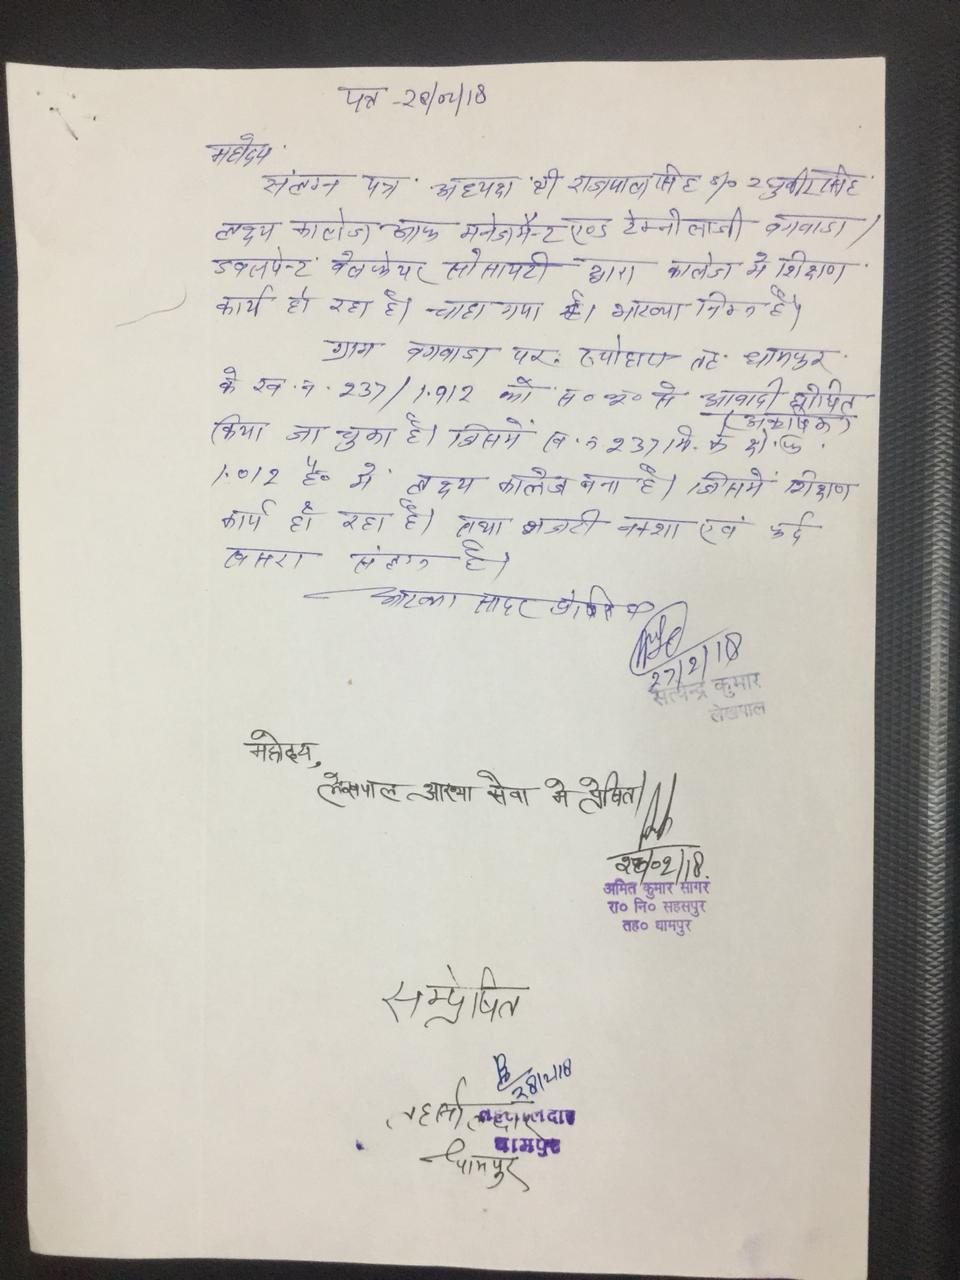 महोदय
संलग्न पत्र अध्यक्ष श्री राजपाल सिंह s/o रघुवीर सिंह
लक्ष्य कालेज आफ मनेजमैन्ट एण्ड टेक्नीलाजी बगवाडा /
डवलपेन्ट वेलफेयर सोसायटी द्वारा कालेज मे शिक्षण
कार्य हो रहा है। चाहा गया है। आख्या निम्न है।
ग्राम बगवाडा पर. तह धामपुर
के ख.न. 237/1.912 को स०अ० से आवादी घोषित
(अकृषिक)
किया जा चुका है। जिसमें ख.न 237 मि. के
1.012 है० में लक्ष्य कालेज बना है। जिसमें शिक्षण
कार्य हो रहा है। तथा नजरी नक्शा एवं फर्द
खसरा संलग्न है।
आख्या सादर प्रेषित है
27/2/18
सत्येन्द्र कुमार
लेखपाल
महोदय,
लेखपाल आख्या सेवा मे प्रेषित
/02/18.
अमित कुमार सागर
रा० नि० सहसपुर
तह० धामपुर
सम्प्रेषित
28/2/18
तहसीलदार तहसीलदार
धामपुर
धामपुर